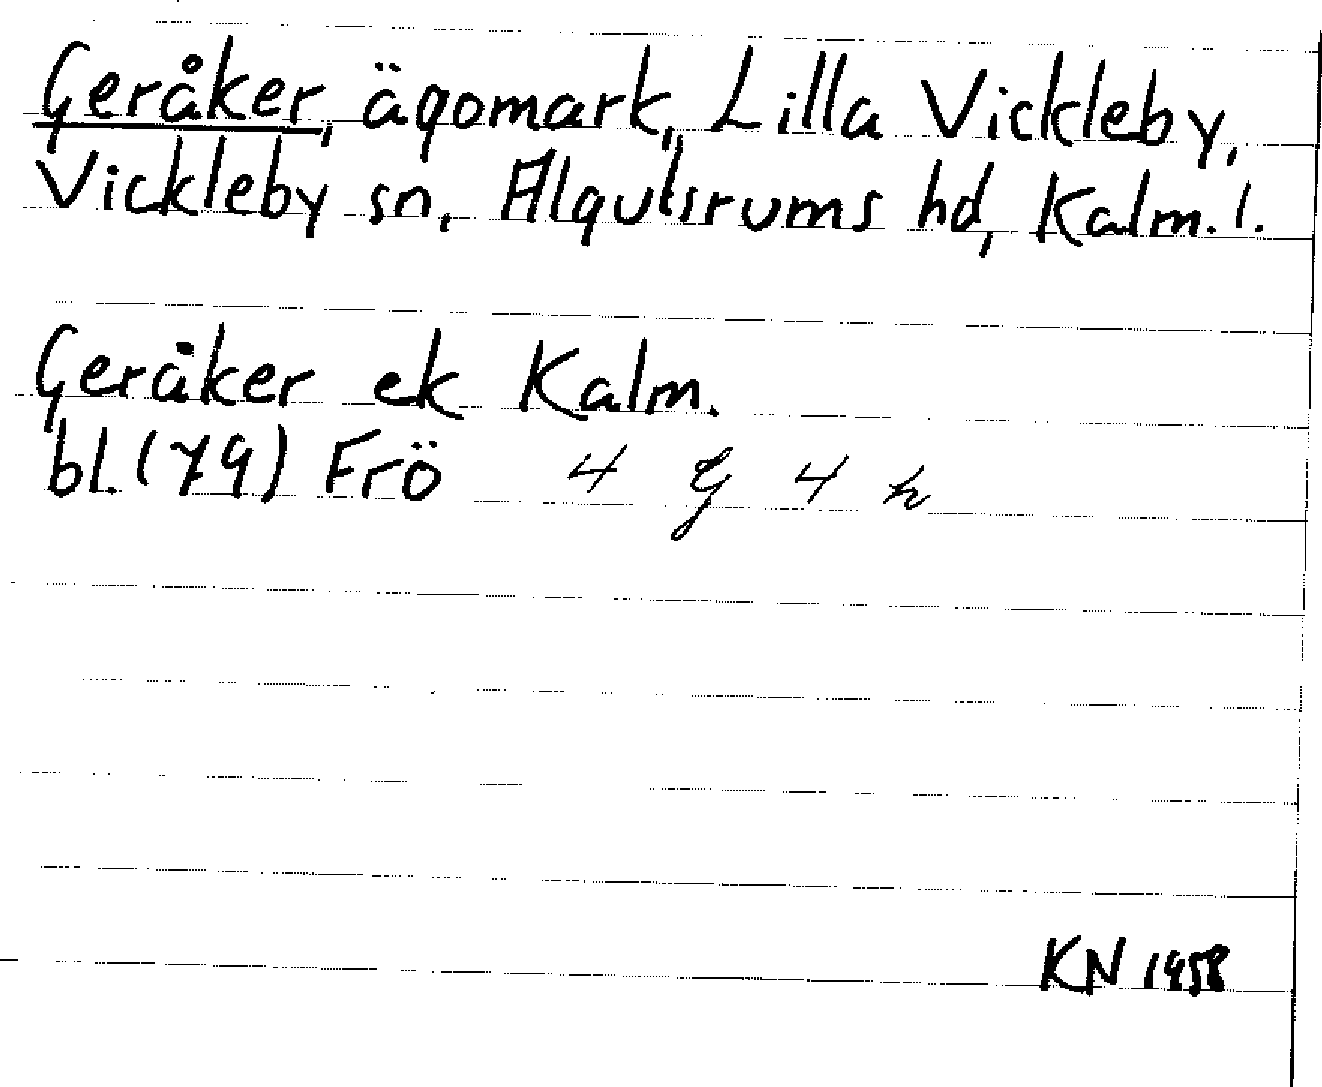 Geråker, ägomark, Lilla Vickleby,
Vickleby sn, Algutsrums hd, Kalm. l.
Geråker ek Kalm.
bl. (79) Frö 4 G 4 h
KN 1958